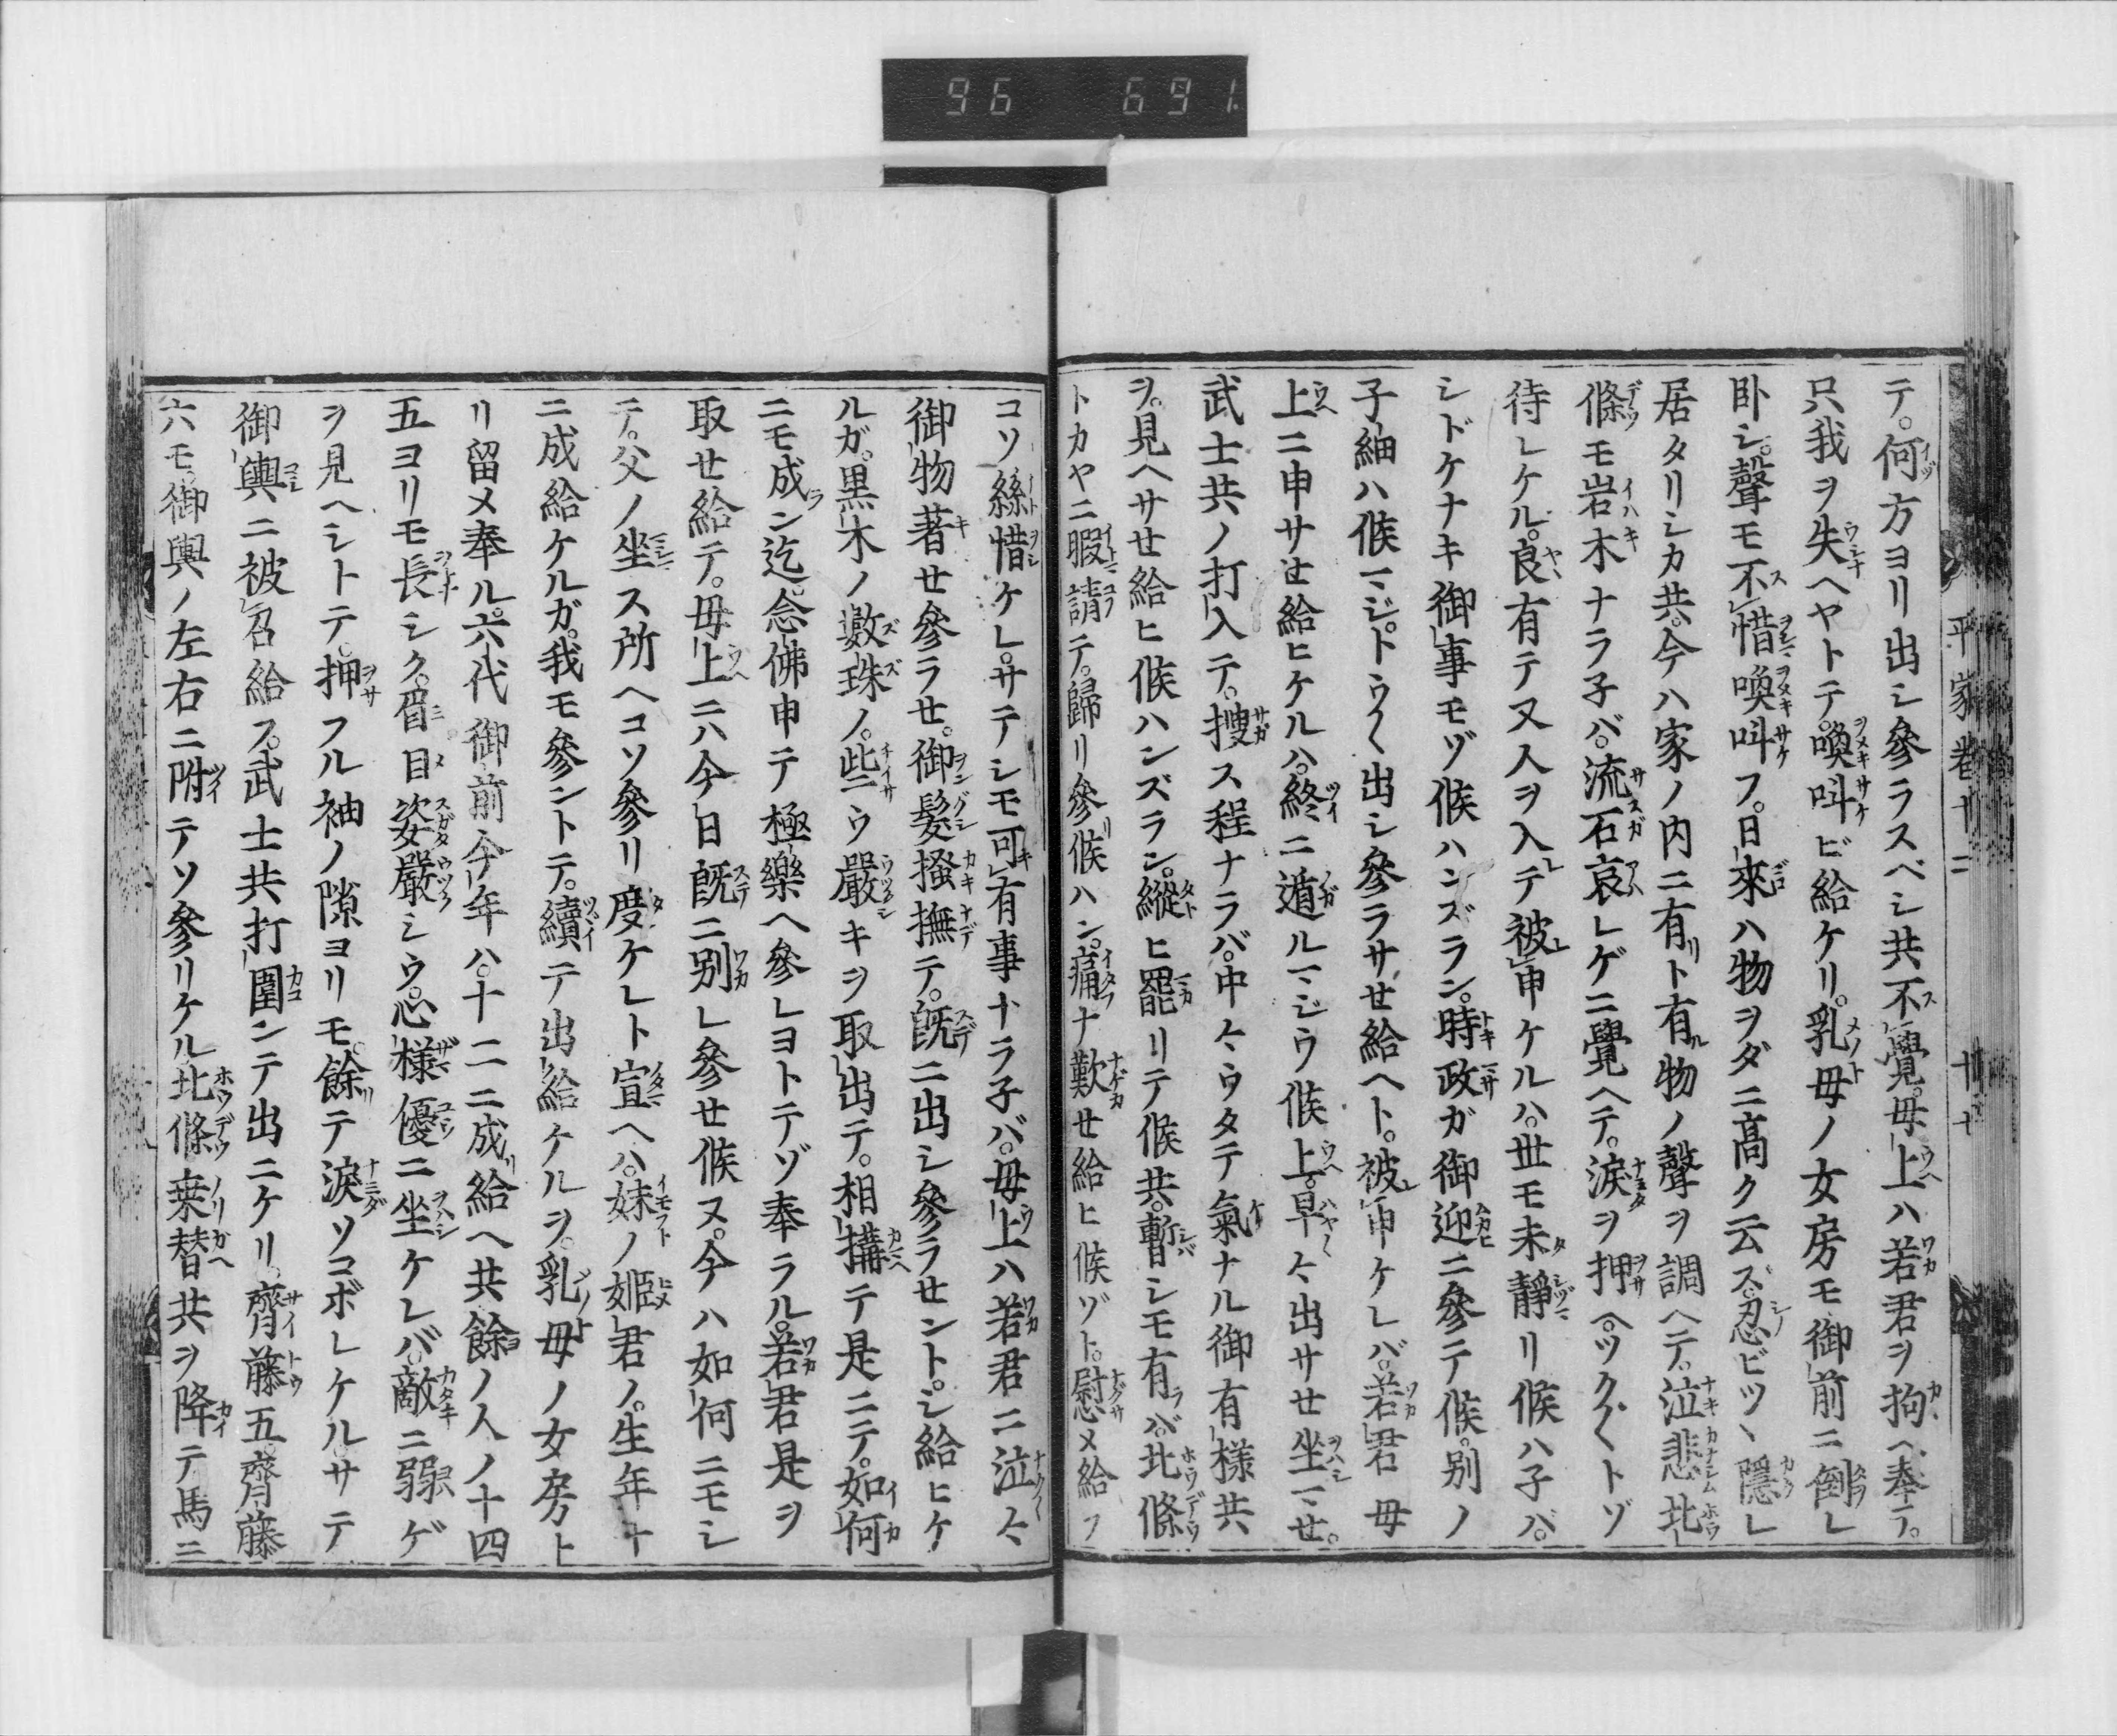 96 691.
平家巻十二 十七
テ。何方ヨリ出シ參ラスベシ共不覺。母上ハ若君ヲ拘ヘ奉テ。
只我ヲ失ヘヤトテ。喚叫ビ給ケリ。乳母ノ女房モ御前ニ倒レ
臥シ。聲モ不惜喚叫フ。日來ハ物ヲダニ髙ク云ズ。忍ビツヽ隱レ
居タリシカ共。今ハ家ノ内ニ有ト有物ノ聲ヲ調ヘテ。泣悲北
條モ岩木ナラ子バ。流石哀レゲニ覺ヘテ。淚ヲ押ヘ。ツク〱トゾ
待レケル。良有テ又人ヲ入テ被申ケルハ。世モ未靜リ候ハ子バ。
シドケナキ御事モゾ候ハンズラン。時政ガ御迎ニ參テ候。別ノ
子細ハ候マジ。トウ〱出シ參ラサせ給ヘト。被申ケレバ。若君母
上ニ申サせ給ヒケルハ。終ニ遁ルマジウ候上。早々出サせ坐マせ。
武士共ノ打入テ。搜ス程ナラバ。中々ウタテ氣ナル御有様共
ヲ。見ヘサせ給ヒ候ハンズラン。縱ヒ罷リテ候共。暫シモ有バ。北條
トカヤニ暇請テ。歸リ參候ハン。痛ナ歎せ給ヒ候ゾト。慰メ給フ
コソ絲惜ケレ。サテシモ可有事ナラ子バ。母上ハ若君ニ泣々
御物著せ參ラせ。御髮搔撫テ。旣ニ出シ參ラせント。シ給ヒケ
ルガ。黒木ノ數珠ノ。些ウ嚴キヲ取出テ。相構テ是ニテ。如何
ニモ成ン迄。念佛申テ極樂ヘ參レヨトテゾ奉ラル。若君是ヲ
取せ給テ。母上ニハ今日旣ニ別レ參せ候ヌ。今ハ如何ニモシ
テ。父ノ坐ス所ヘコソ參リ度ケレト宣ヘハ。妹ノ姫君ノ。生年十
ニ成給ケルガ。我モ參ントテ。續テ出給ケルヲ。乳母ノ女房ト
リ留メ奉ル。六代御前今年ハ。十二ニ成給ヘ共餘ノ人ノ十四
五ヨリモ長シク。眉目姿嚴シウ。心様優ニ坐ケレバ。敵ニ弱ゲ
ヲ見ヘシトテ。押フル袖ノ隙ヨリモ。餘テ淚ソコボレケル。サテ
御輿ニ被召給フ。武士共打圍ンテ出ニケリ。齊藤五。齊藤
六モ。御輿ノ左右ニ附テソ參リケル北條乗替共ヲ降テ馬ニ